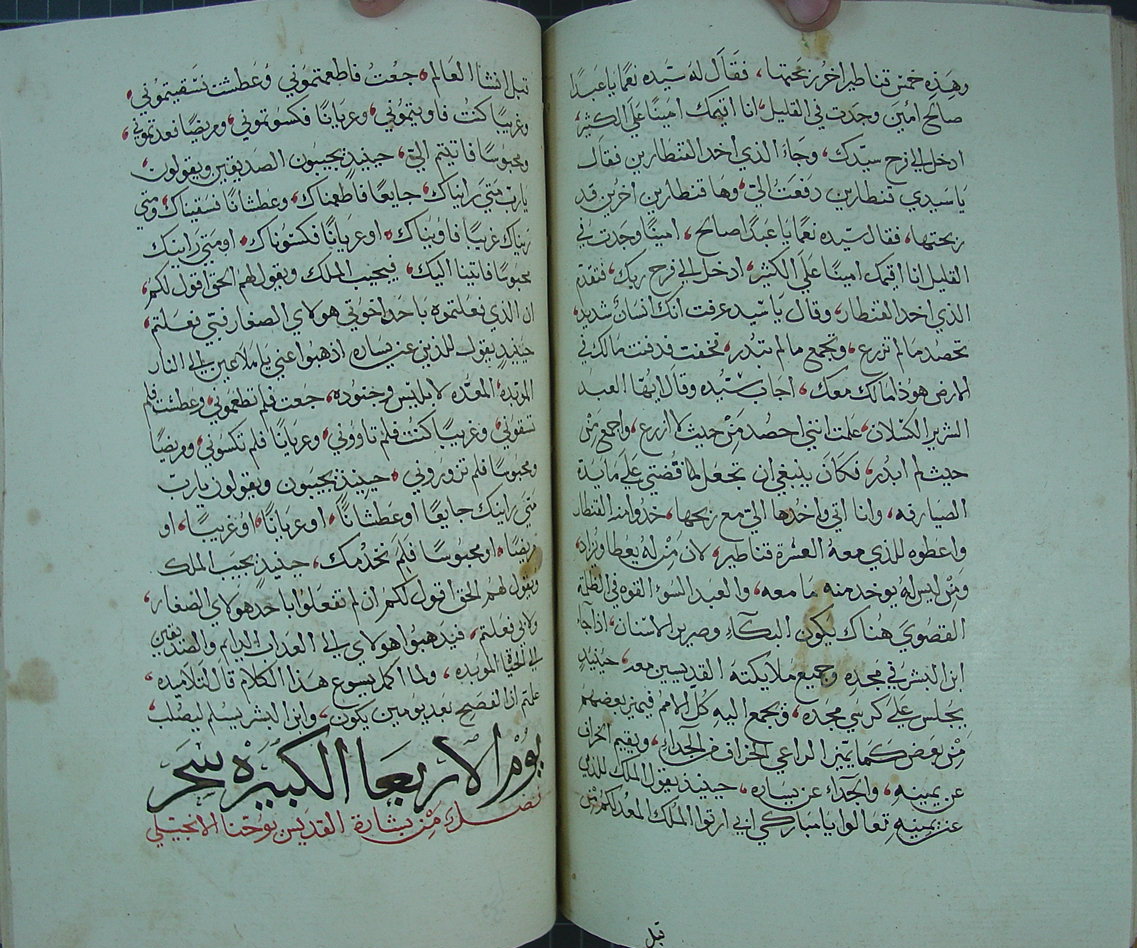 وهذه خمس قناطير اخر ربحتها، فقال له سيده نعمًا يا عبدًا
صالح امين وجدت في القليل، انا اقيمك امينًا علي الكثير،
ادخل الي فرح سيدك، وجاء الذي اخد القنطارين فقال
يا سيدي قنطارين دفعت اليّ، وها قنطارين اخرين قد
ربحتها، فقال سيده نعمًا يا عبدًا صالح، امينًا وجدت في
القليل انا اقيمك امينًا علي الكثير، ادخل الي فرح ربك، فتقدم
الذي اخد القنطار، وقال يا سيد عرفت انك انسان شديد،
تحصد ما لم تزرع، وتجمع ما لم تبدر، فخفت فدفنت مالك في
الارض هوذا مالك معك، اجاب سيده وقال ايها العبد
الشرير الكسلان، علمت انني احصد من حيث لا ازرع، واجمع من
حيث لم ابدر، فكان ينبغي ان تجعل لها فضتي علي مايدة
الصيارفه، وانا اتي واخدها اليّ مع ربحها، خدوا منه القنطار
واعطوه للذي معه العشرة قناطير، لان من له يعطا ويزاد،
ومن ليس له يوخد منه ما معه، والعبد السوء القوه في الظلمة
القصوي هناك يكون البكاء وصرير الاسنان، اذا جا
ابن البشر في مجده وجميع ملايكته القديسين معه، حينيدٍ
يجلس علي كرسي مجده، ويجمع اليه كل الامم فيميز بعضهم
من بعض كما يميز الراعي الخراف من الجداء، ويقيم الخراف
عن يمينه، والجداء عن يساره، حينيد يقول الملك للذين
عن يمينه تعالوا يا مباركي ابي ارثوا الملك المعد لكم من
قبل
قبل انشا العالم، جعت فاطعمتموني وعطشت فسقيتموني،
وغريبًا كنت فاويتموني، وعريانًا فكسوتموني، ومريضًا فعدتموني،
ومحبوسًا فاتيتم اليّ، حينيدٍ يجيبون الصديقين ويقولون
يا رب متي رايناك، جايعًا فاطعمناك، وعطشانًا فسقيناك، ومتي
رايناك غريبًا فاويناك، او عريانًا فكسوناك، او متي رايناك
محبوسًا فاتينا اليك، فيجيب الملك ويقول لهم الحق اقول لكم،
ان الذي فعلتموه باحد اخوتي هولاي الصغار فبي فعلتم،
حينيدٍ يقول للذين عن يساره اذهبوا عني يا ملاعين الي النار
الموبده، المعده لابليس وجنوده، جعت فلم تطعموني، وعطشت فلم
تسقوني، وغريبًا كنت فلم تاووني، وعريانًا فلم تكسوني، ومريضًا
ومحبوسًا فلم تزوروني، حينيدٍ يجيبون ويقولون يا رب
متي رايناك جايعًا او عطشانًا، او عريانًا، او غريبًا، او
مريضًا، او محبوسًا فلم نخدمك، حينيدٍ يجيب الملك
ويقول لهم الحق اقول لكم ان لم تفعلوا باحد هولاي الصغار،
ولا بي فعلتم، فيدهبوا هولاي الي العداب الدايم والصديقين
الي الحياة الموبده، ولما اكمل يسوع هذا الكلام قال لتلاميده،
علمتم ان الفصح بعد يومين يكون، وابن البشر يسلم ليصلب،
يوم الاربعا الكبيره سحر
فصل من بشارة القديس يوحنا الانجيلي